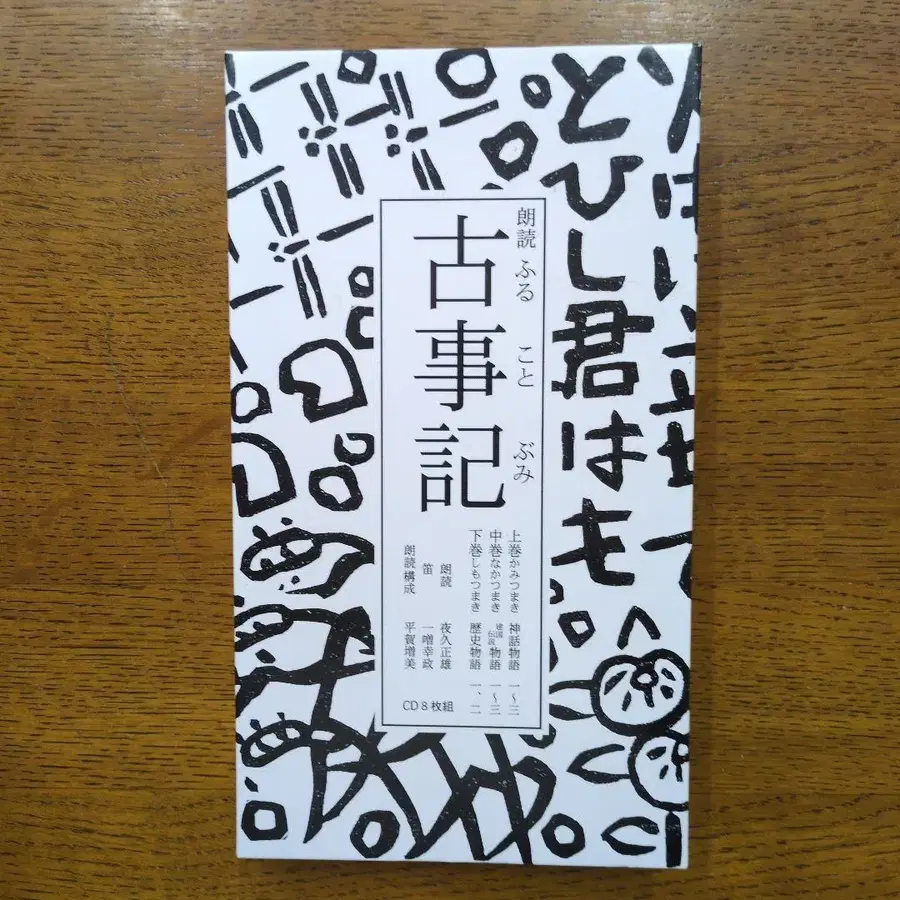 朗読 ふる こと ぶみ
古事記
上巻かみつまき 神話物語 一〜三
中巻なかつまき 建国伝説 物語 一〜三
下巻しもつまき 歴史物語 一、二
朗読 夜久正雄
笛 一噌幸政
朗読構成 平賀増美
CD8枚組
とひし君はも